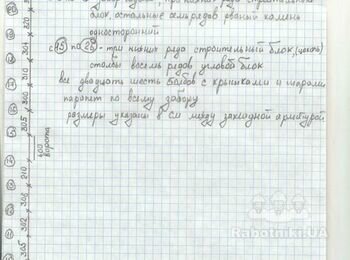 блок, остальные семь рядов рваный камень
односторонний
с 15 по 26 - три нижних ряда строительный блок, (цоколь)
столбы восемь рядов угловой блок
все двадцать шесть столбов с крышками и шарами
парапет по всему забору
размеры указаны в см между закладной арматурой
320
304
310
300
305
400
ворота
210
306
302
305
Rabotniki.UA